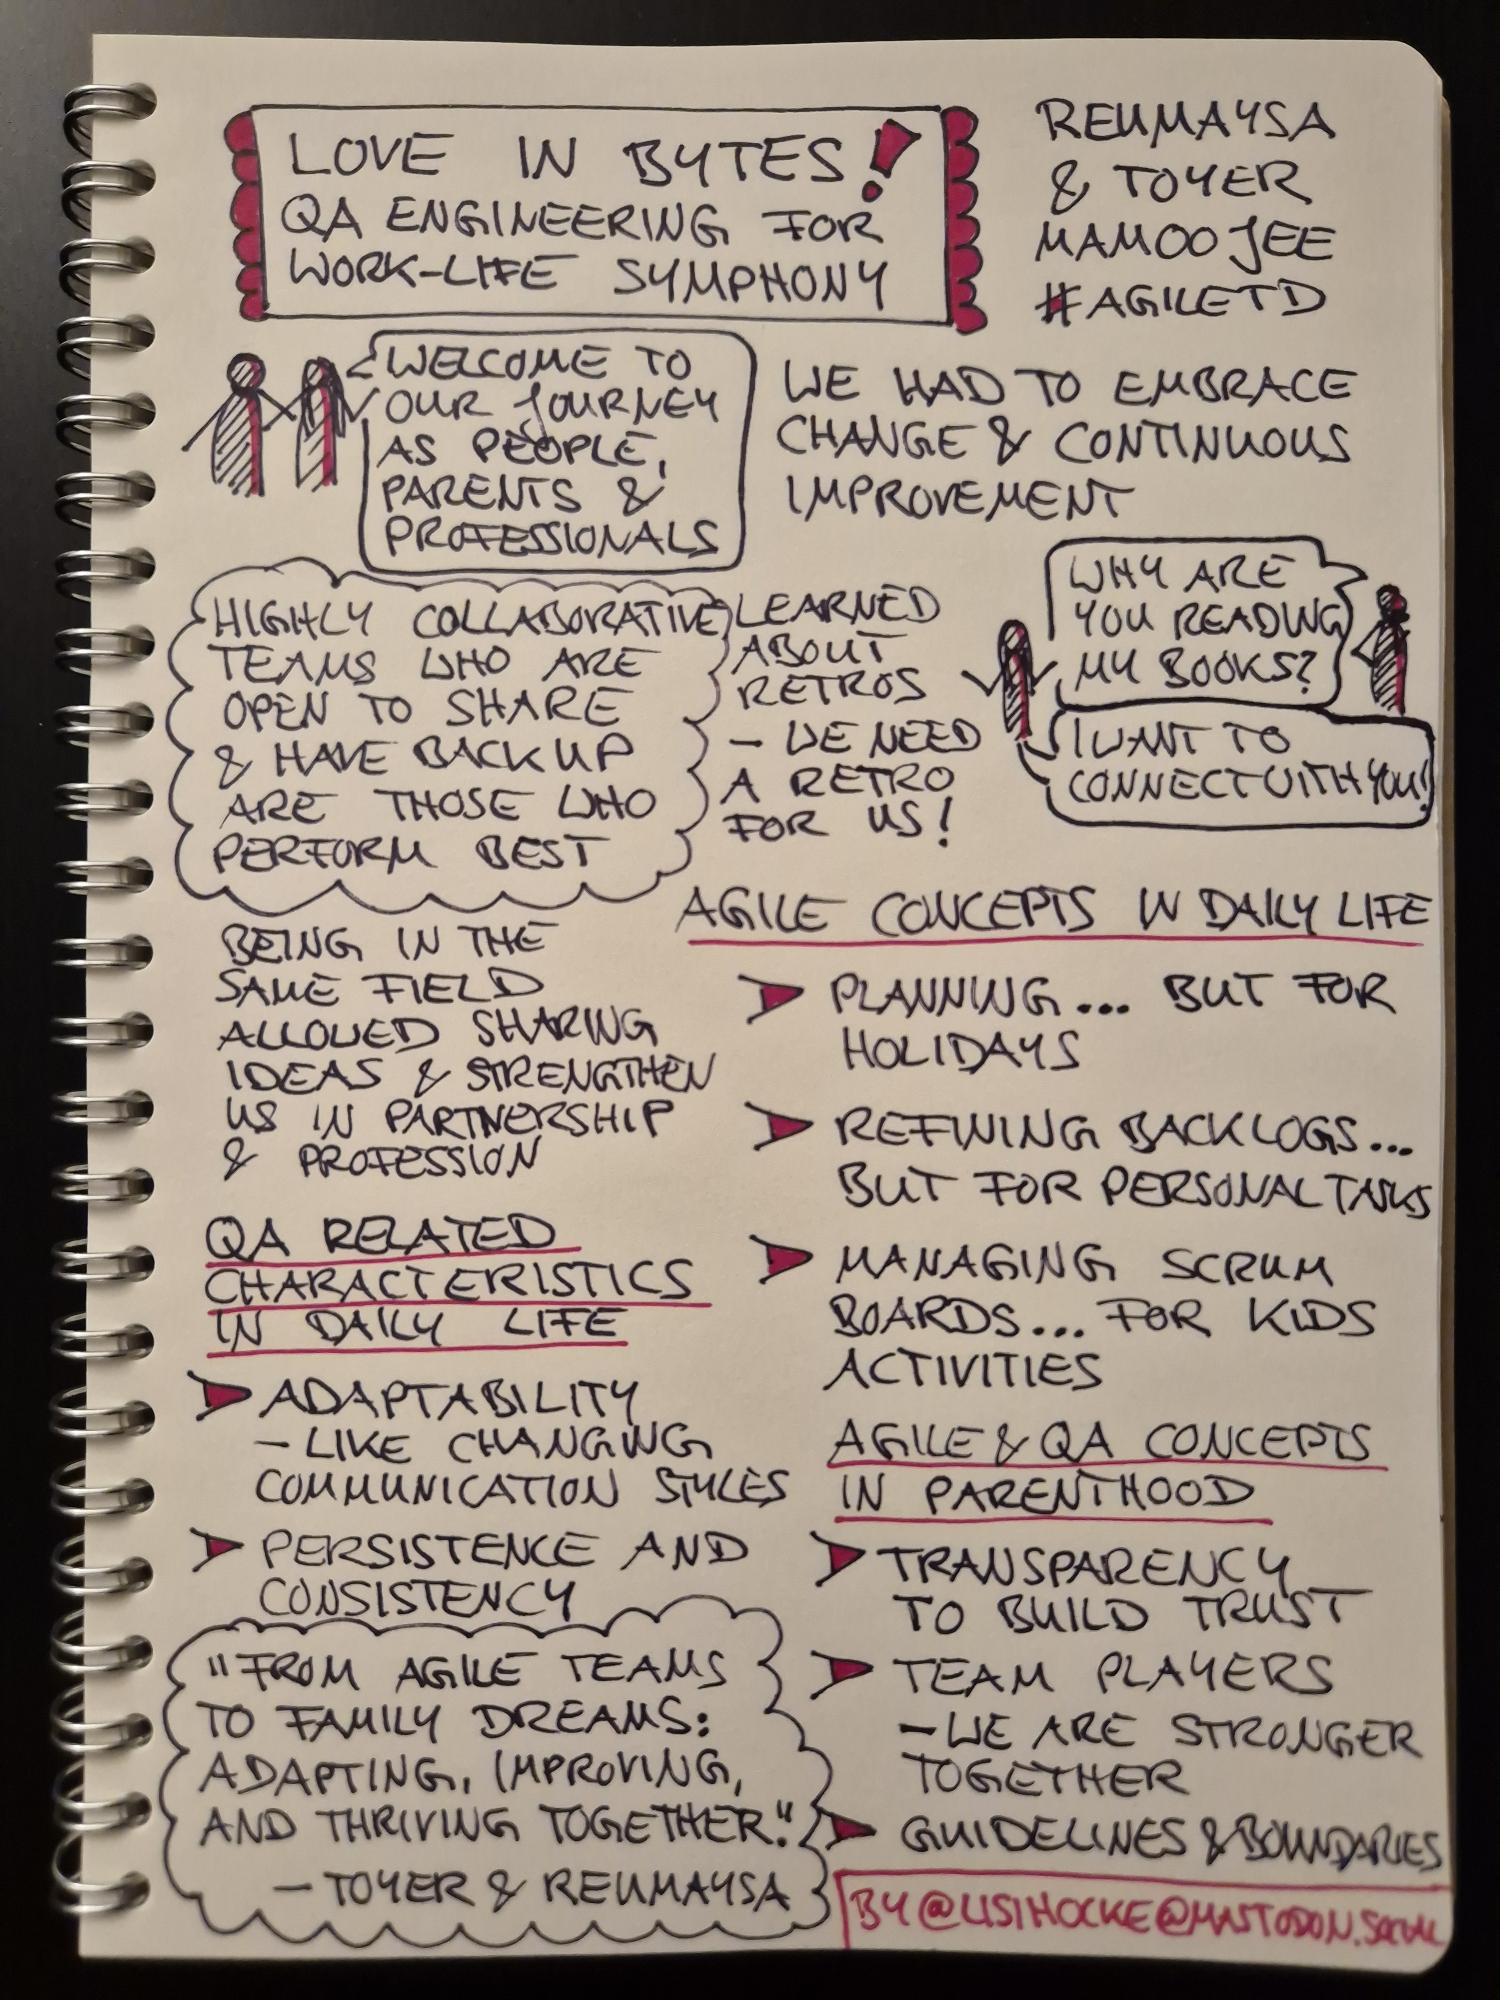 LOVE IN BYTES!
QA ENGINEERING FOR
WORK-LIFE SYMPHONY
REUMAYSA
& TOYER
MAMOOJEE
#AGILETD
WELCOME TO
OUR JOURNEY
AS PEOPLE,
PARENTS &
PROFESSIONALS
WE HAD TO EMBRACE
CHANGE & CONTINUOUS
IMPROVEMENT
HIGHLY COLLABORATIVE
TEAMS WHO ARE
OPEN TO SHARE
& HAVE BACKUP
ARE THOSE WHO
PERFORM BEST
LEARNED
ABOUT
RETROS
- WE NEED
A RETRO
FOR US!
WHY ARE
YOU READING
MY BOOKS?
I WANT TO
CONNECT WITH YOU!
BEING IN THE
SAME FIELD
ALLOWED SHARING
IDEAS & STRENGTHEN
US IN PARTNERSHIP
& PROFESSION
QA RELATED
CHARACTERISTICS
IN DAILY LIFE
ADAPTABILITY
- LIKE CHANGING
COMMUNICATION STYLES
PERSISTENCE AND
CONSISTENCY
"FROM AGILE TEAMS
TO FAMILY DREAMS:
ADAPTING, IMPROVING,
AND THRIVING TOGETHER."
- TOYER & REUMAYSA
AGILE CONCEPTS IN DAILY LIFE
PLANNING... BUT FOR
HOLIDAYS
REFINING BACKLOGS...
BUT FOR PERSONAL TASKS
MANAGING SCRUM
BOARDS... FOR KIDS
ACTIVITIES
AGILE & QA CONCEPTS
IN PARENTHOOD
TRANSPARENCY
TO BUILD TRUST
TEAM PLAYERS
- WE ARE STRONGER
TOGETHER
GUIDELINES & BOUNDARIES
BY @LISIHOCKE@MASTODON.SOCIAL